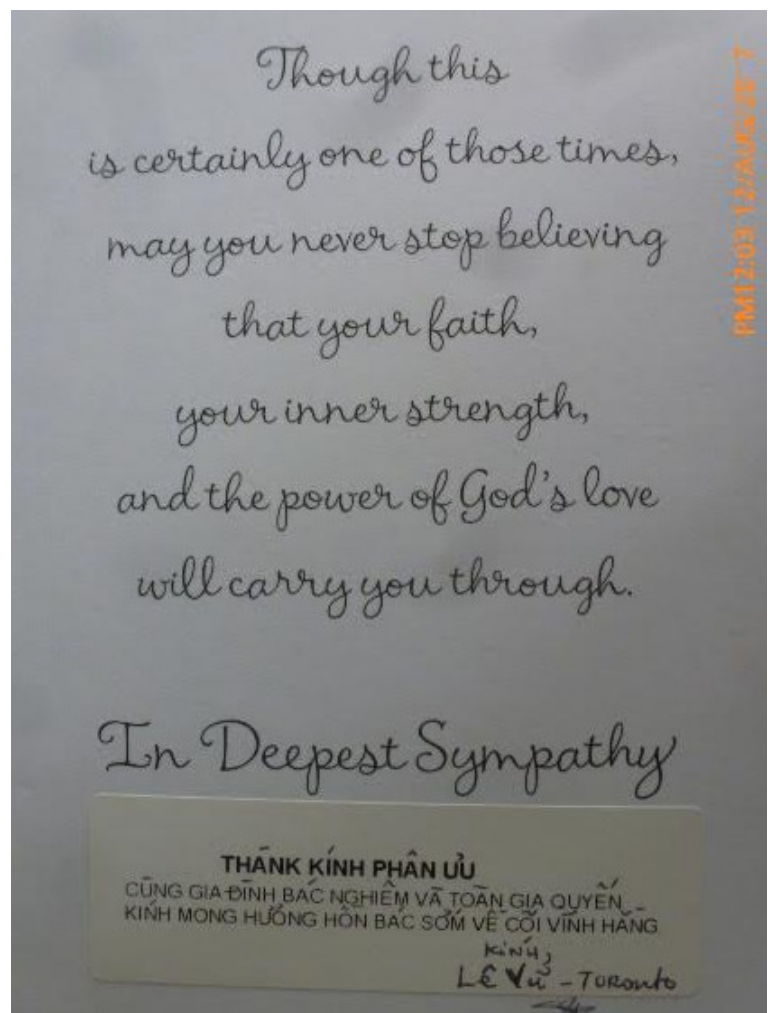 Though this
is certainly one of those times,
may you never stop believing
that your faith,
your inner strength,
and the power of God's love
will carry you through.
In Deepest Sympathy
THÀNH KÍNH PHÂN ƯU
CÙNG GIA ĐÌNH BÁC NGHIÊM VÀ TOÀN GIA QUYẾN
KÍNH MONG HƯƠNG HỒN BÁC SỚM VỀ CÕI VĨNH HẰNG
KÍNH,
LÊ VŨ - TORONTO
PM12:03 12/AUG/20